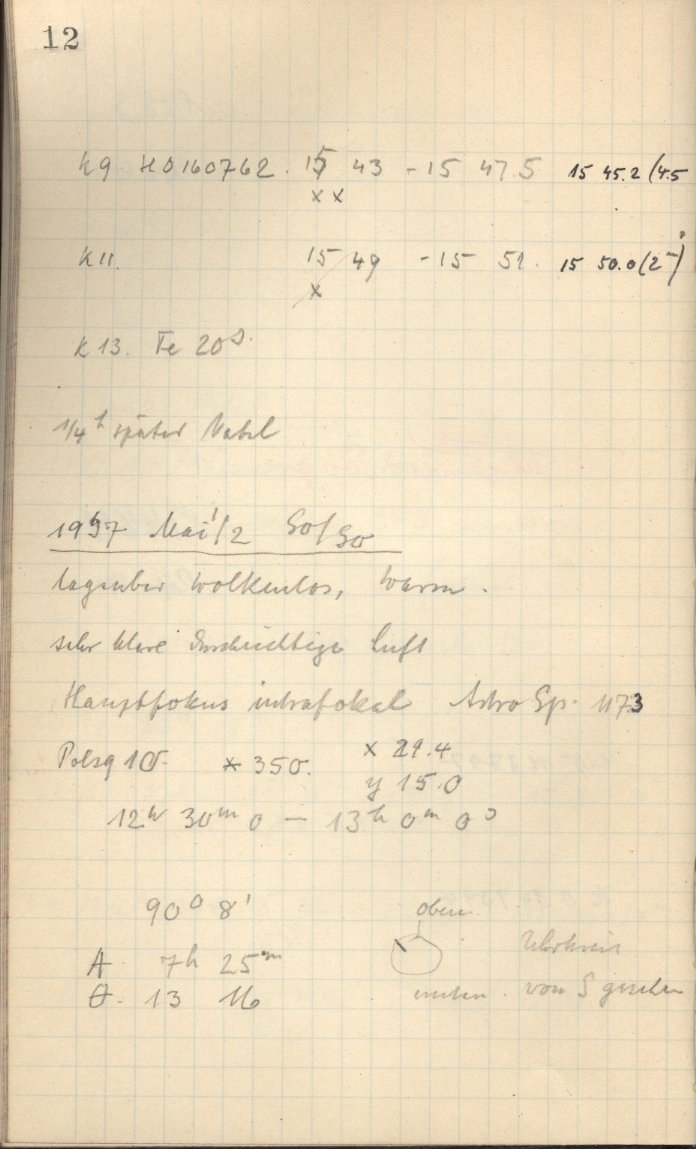 12
K9 HD160762. 15 43 - 15 47.5 15 45.2 (4.5
x x
K11. 15 49 - 15 51. 15 50.0 (2-)
x
K 13. Fe 20s.
1/4 h später Nebel
1937 Mai 1/2 So/So
tagsuber wolkenlos, warm.
sehr klare durchsichtige Luft
Hauptfokus intrafokal Astro Sp. 1173
Polsq 10. * 350. x 29.4
y 15.0
12h 30m 0 — 13h 0m 0s
90° 8'
oben
A 7h 25m Uhrkreis
unten. von S gesehen
θ. 13 16